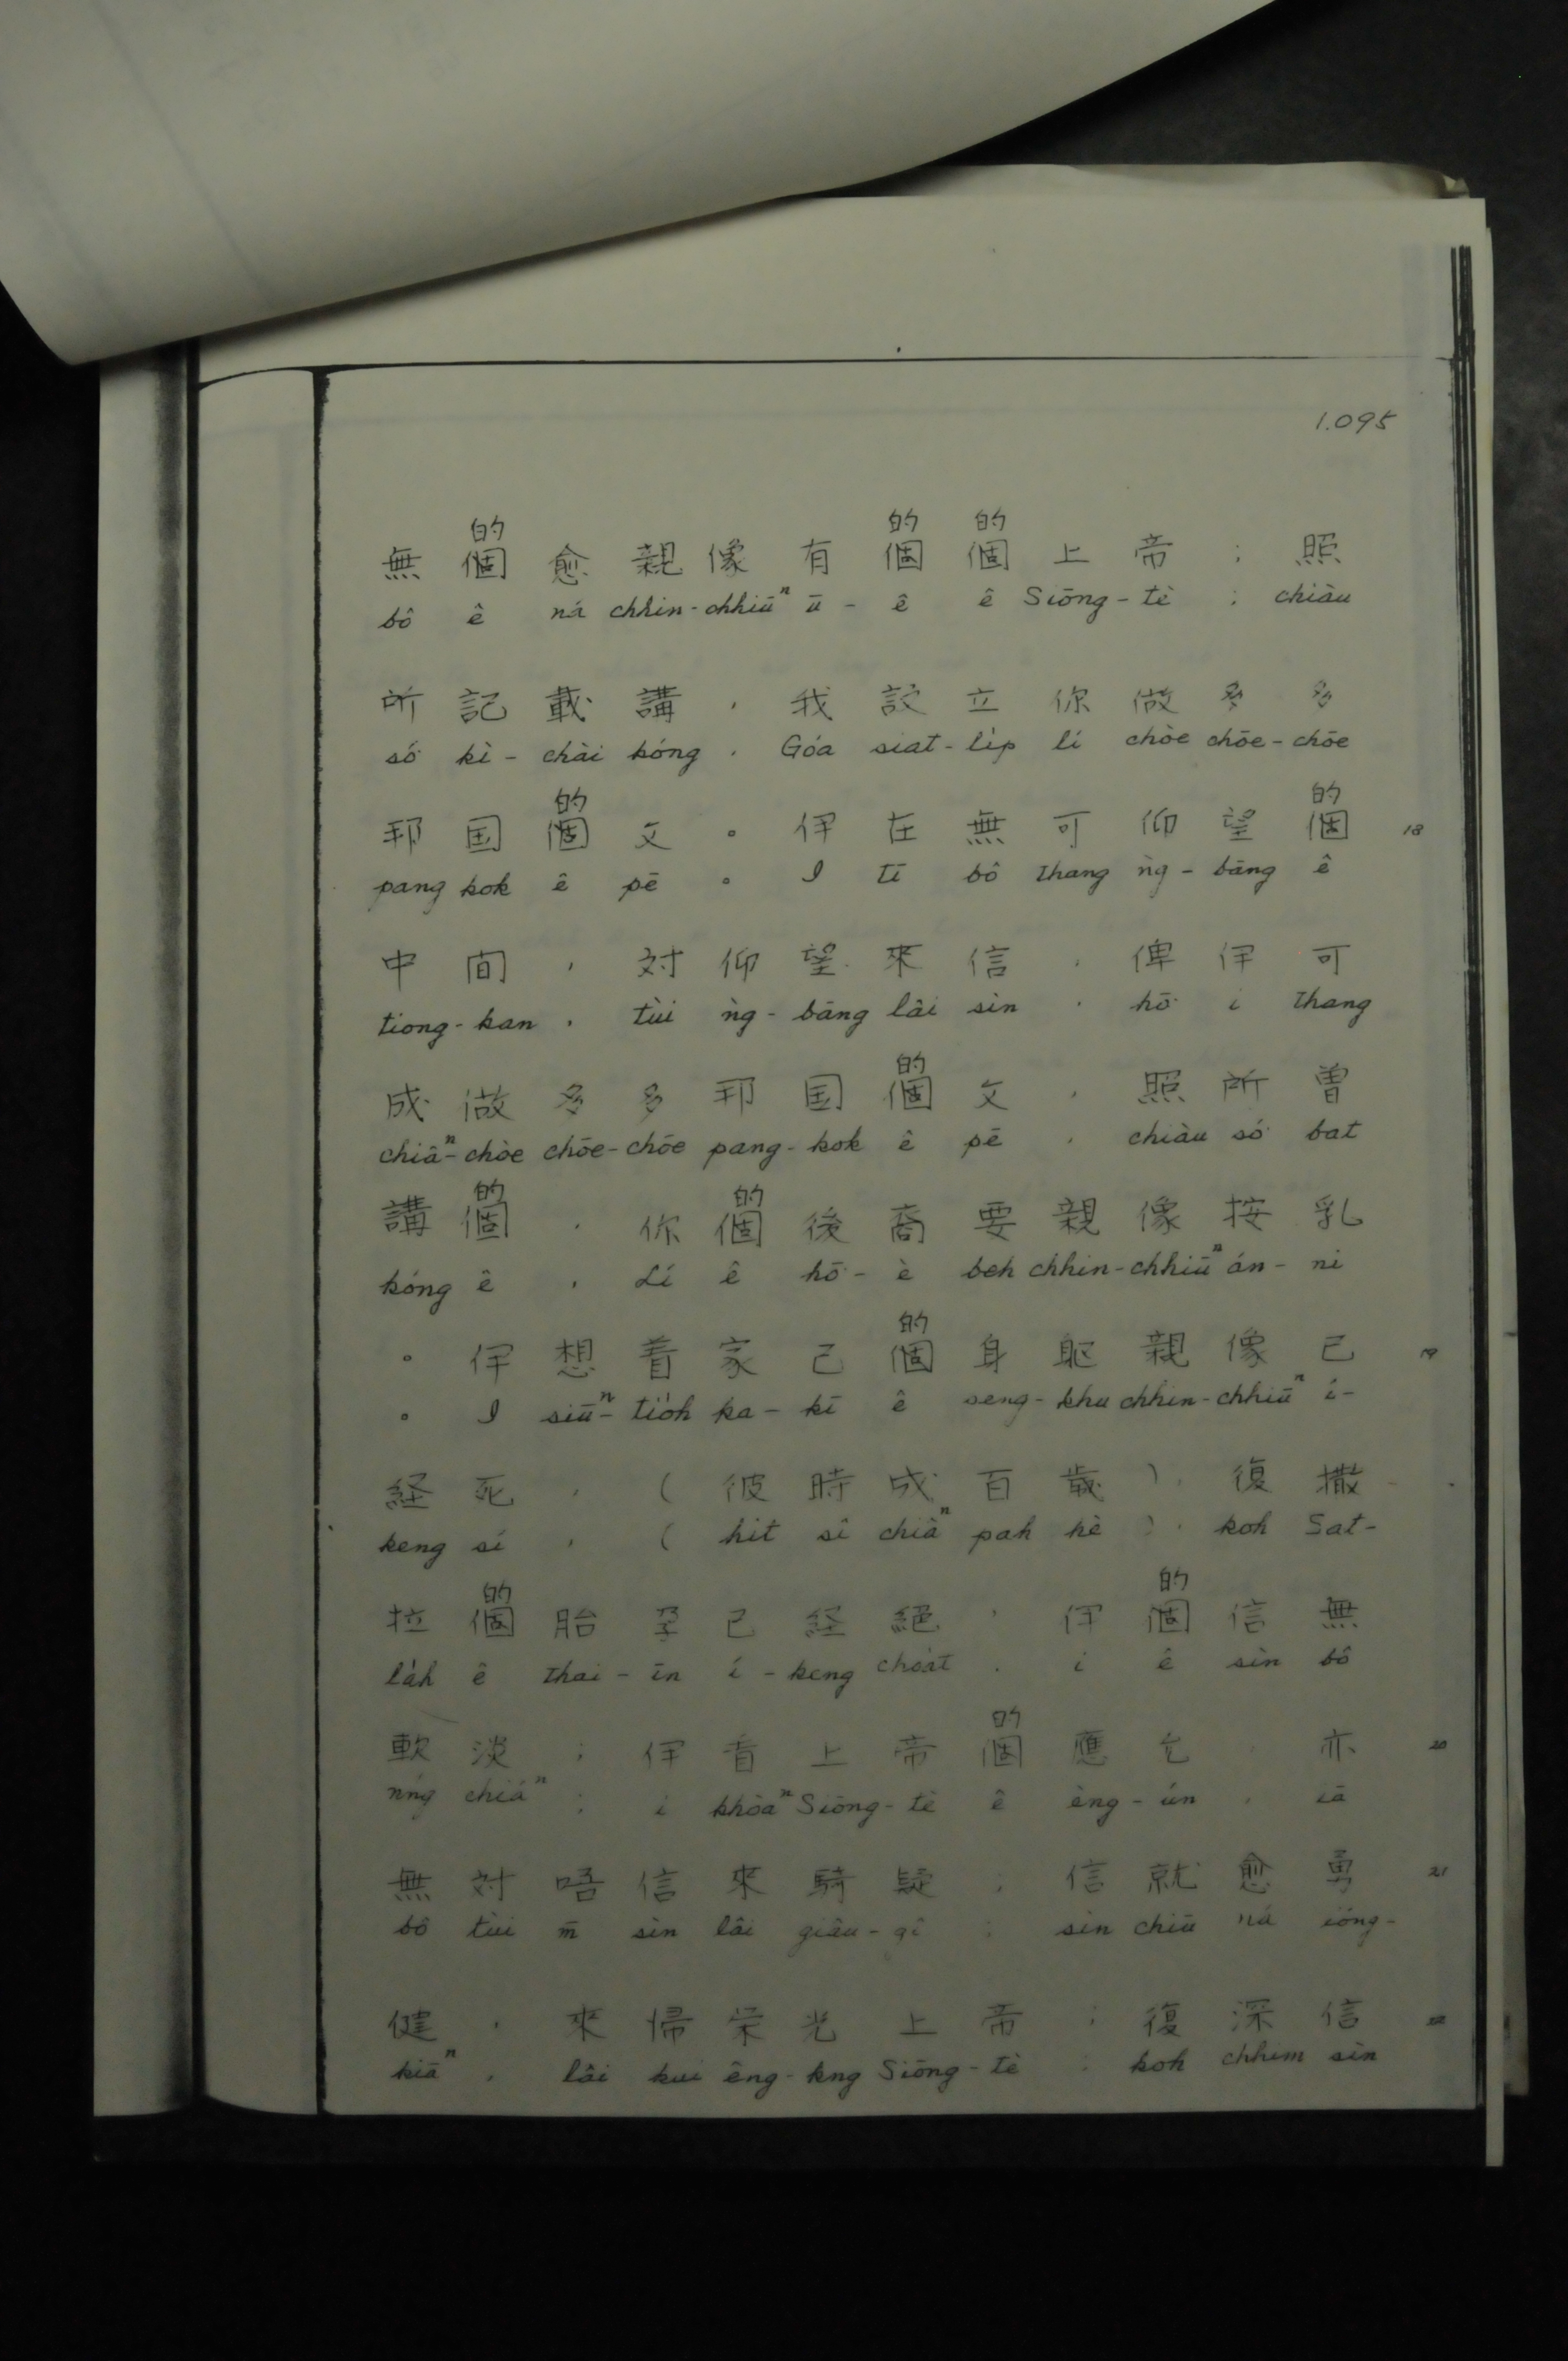 1.095
的 的 的
無 個 愈 親 像 有 個 個 上 帝 ; 照
bô ê ná chhin-chhiūⁿ ū-ê ê Siōng-tè ; chiàu
所 記 載 講 , 我 設 立 你 做 多 多
só͘ kì-chài kóng , Góa siat-li̍p lí chòe chōe-chōe
的 的
邦 国 個 父 。 伊 在 無 可 仰 望 個 18
pang kok ê pē 。 I tī bô thang ǹg-bāng ê
中 间 , 対 仰 望 來 信 , 俾 伊 可
tiong-kan , tùi ǹg-bāng lâi sìn , hō͘ i thang
的
成 做 多 多 邦 国 個 父 , 照 所 曽
chiâⁿ-chòe chōe-chōe pang-kok ê pē , chiàu só͘ bat
的 的
講 個 , 你 個 後 裔 要 親 像 按 乳
kóng ê , Lí ê hō͘-è beh chhin-chhiūⁿ án-ni
的
。 伊 想 着 家 己 個 身 躯 親 像 已 19
。 I siūⁿ-tio̍h ka-kī ê seng-khu chhin-chhiūⁿ í-
経 死 , ( 彼 時 成 百 歳 ) , 復 撒
keng sí , ( hit sî chiâⁿ pah hè ) , koh Sat-
的 的
拉 個 胎 孕 已 経 絕 , 伊 個 信 無
la̍h ê thai-īn í-keng choa̍t , i ê sìn bô
的
軟 淡 ; 伊 看 上 帝 個 應 允 , 亦 20
nńg chiáⁿ ; i khòaⁿ Siōng-tè ê èng-ún , iā
無 対 唔 信 來 騎 疑 ; 信 就 愈 勇 21
bô tùi m̄ sìn lâi giâu-gî ; sìn chiū ná ióng-
健 , 來 帰 栄 光 上 帝 ; 復 深 信 22
kiāⁿ , lâi kui êng-kng Siōng-tè ; koh chhim sìn